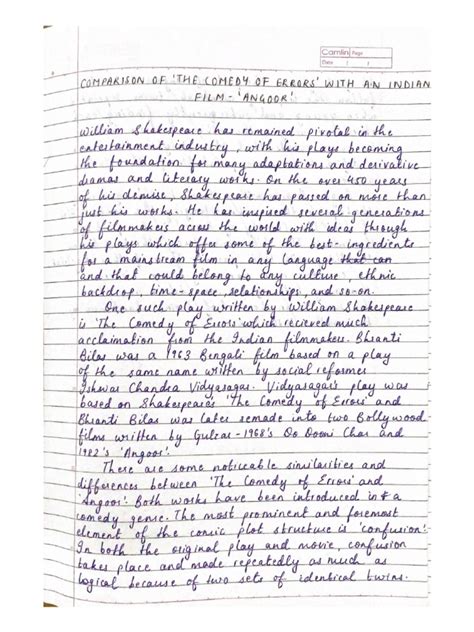 Camlin Page
Date / /
COMPARISON OF 'THE COMEDY OF ERRORS' WITH AN INDIAN
FILM - 'ANGOOR'
William Shakespeare has remained pivotal in the
entertainment industry, with his plays becoming
the foundation for many adaptations and derivative
dramas and literary works. On the over 450 years
of his demise, Shakespeare has passed on more than
just his works. He has inspired several generations
of filmmakers across the world with ideas through
his plays which offer some of the best-ingredients
for a mainstream film in any language that can
and that could belong to any culture, ethnic
backdrop, time-space, relationships, and so-on.
One such play written by William Shakespeare
is 'The Comedy of Errors' which recieved much
acclamation from the Indian filmmakers. Bhranti
Bilas was a 1963 Bengali film based on a play
of the same name written by social reformer
Ishwar Chandra Vidyasagar. Vidyasagar's play was
based on Shakespeare's 'The Comedy of Errors' and
Bhranti Bilas was later remade into two Bollywood
films written by Gulzar - 1968's Do Dooni Char and
1982's 'Angoor'.
There are some noticeable similarities and
differences between 'The Comedy of Errors' and
'Angoor'. Both works have been introduced in a
comedy genre. The most prominent and foremost
element of the comic plot structure is 'confusion'.
In both the original play and movie, confusion
takes place and made repeatedly as much as
logical because of two sets of identical twins.